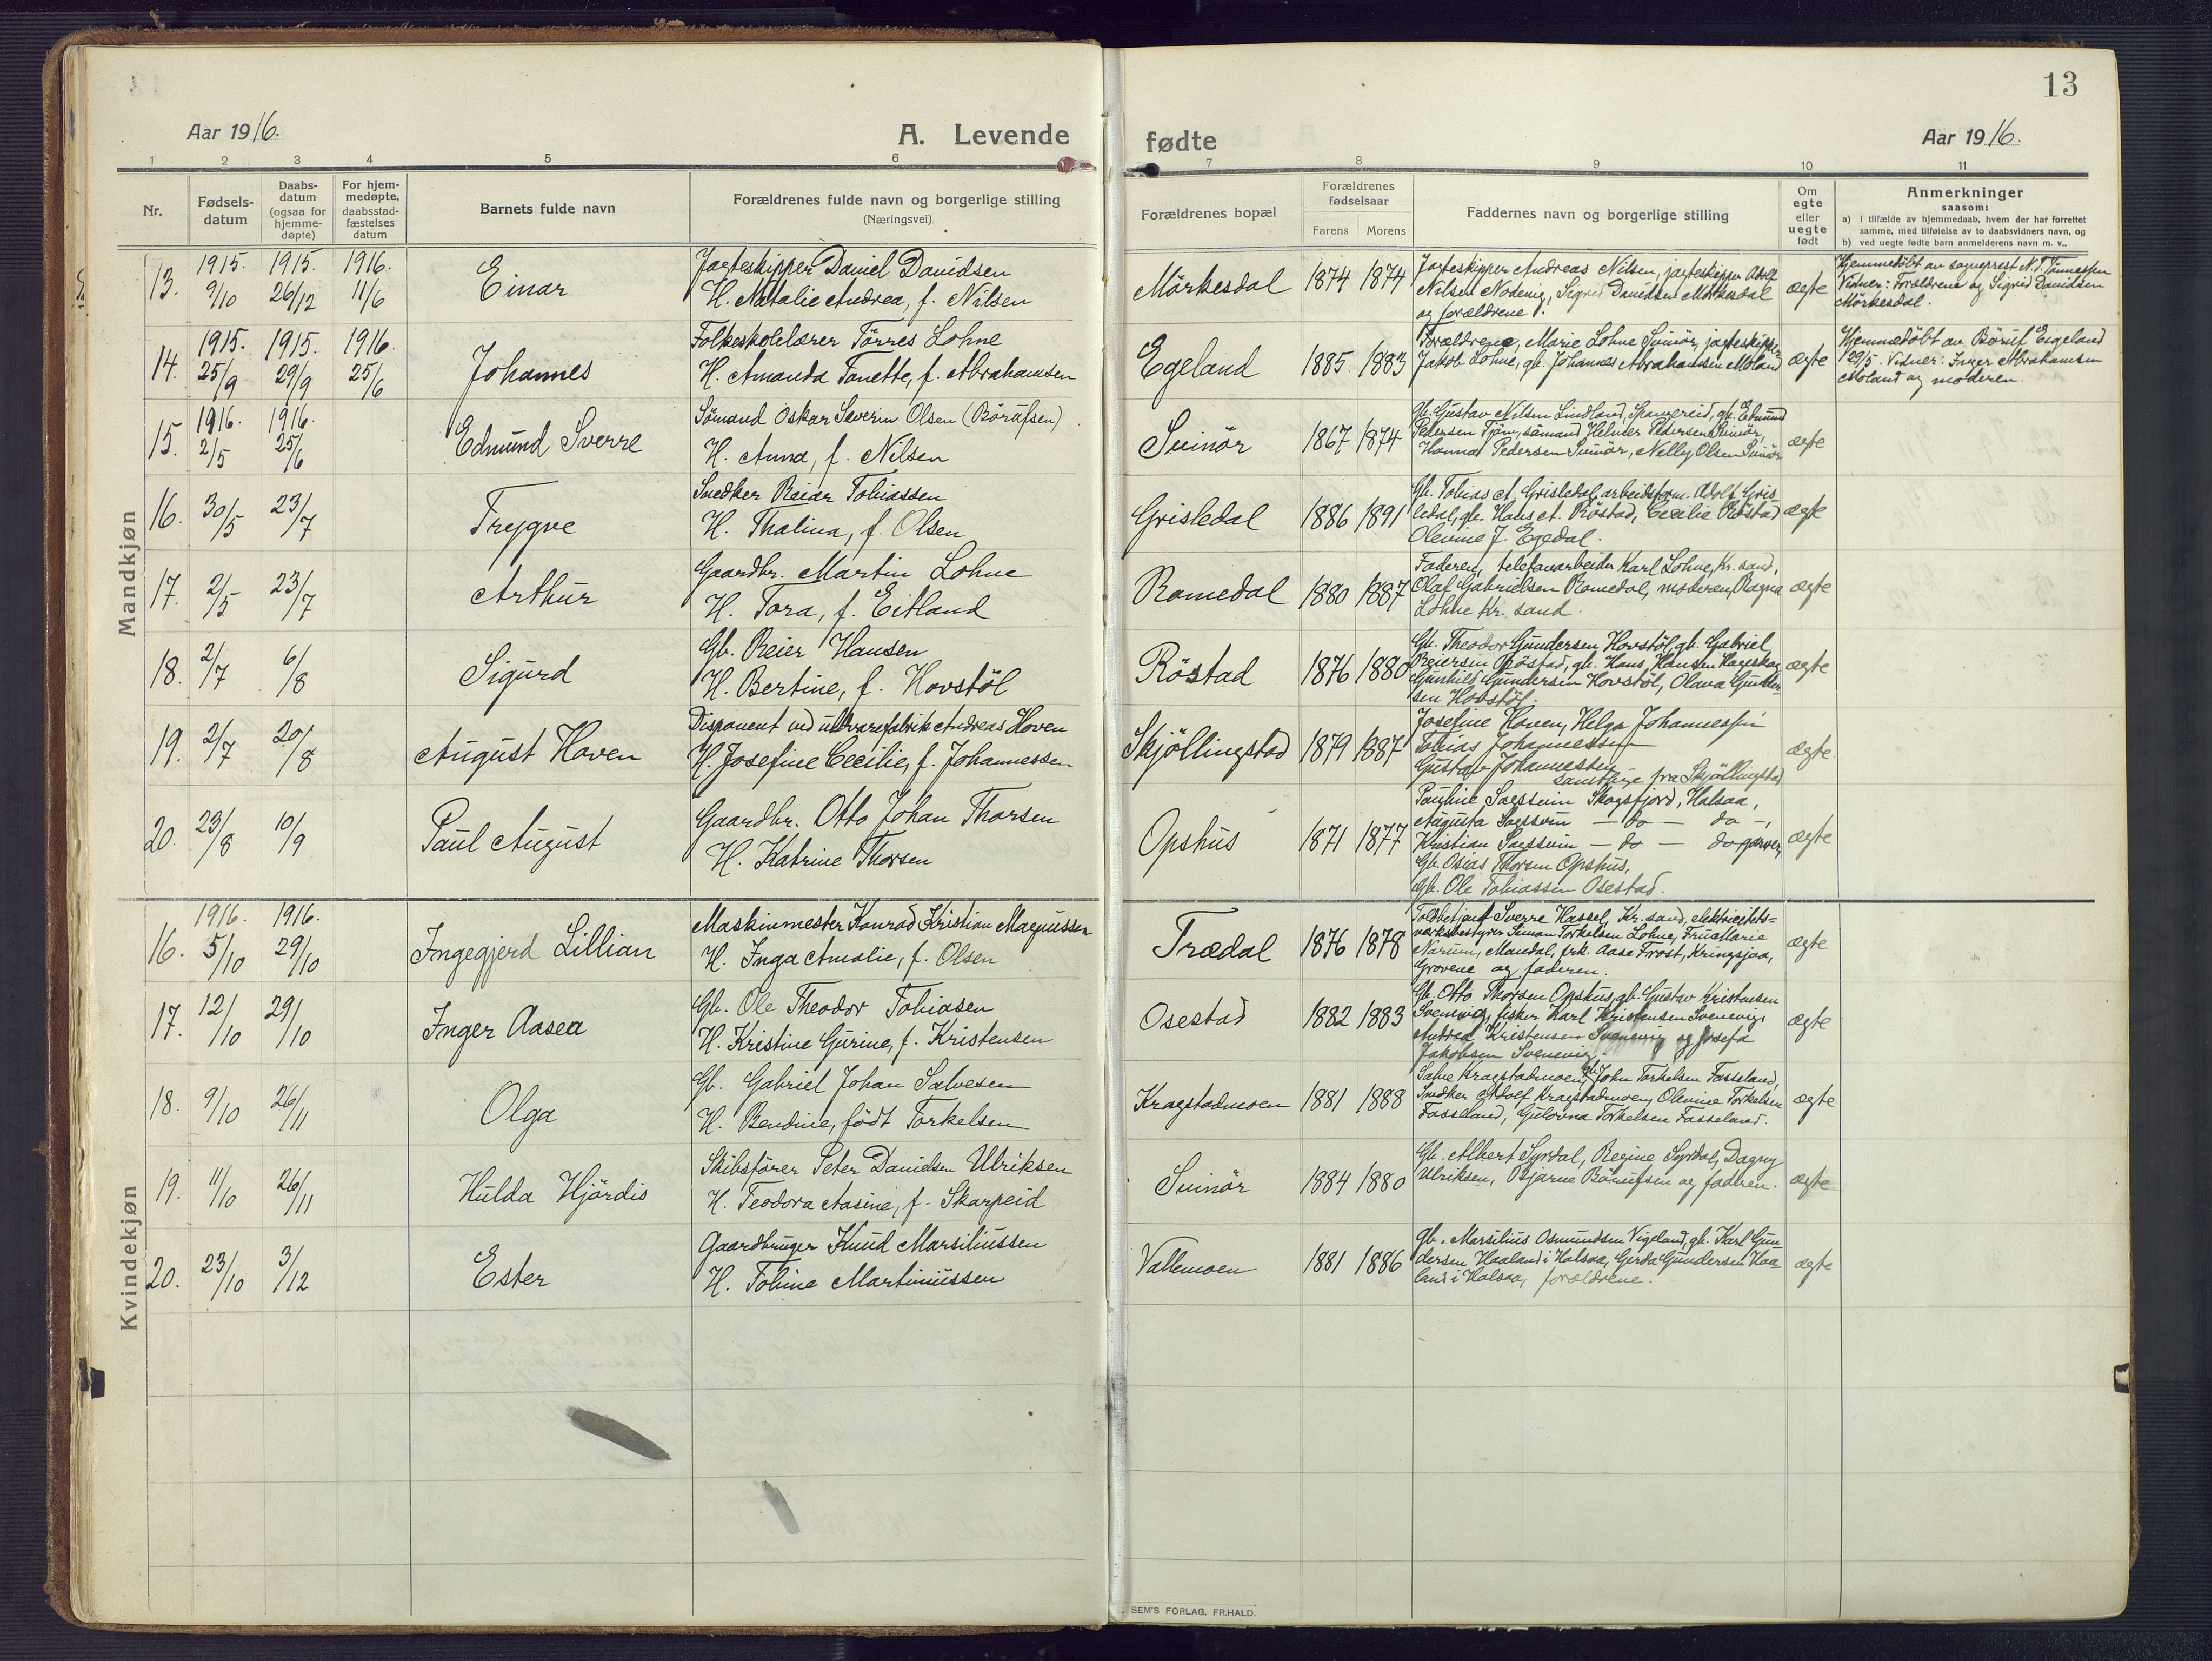 13
Aar 1916.
A. Levende
fødte
Aar 1916.
1 2 3 4 5 6 7 8 9 10 11
Nr.
Fødsels-
datum
Daabs-
datum
(ogsaa for
hjemme-
døpte)
For hjem-
medøpte,
daabsstad-
fæstelses
datum
Barnets fulde navn
Forældrenes fulde navn og borgerlige stilling
(Næringsvei)
Forældrenes bopæl
Forældrenes
fødselsaar
Farens Morens
Faddernes navn og borgerlige stilling
Om
egte
eller
uegte
født
Anmerkninger
saasom:
a) i tilfælde av hjemmedaab, hvem der har forrettet
samme, med tilføielse av to daabsvidners navn, og
b) ved uegte fødte barn anmelderens navn m. v..
Mandkjøn
13.
1915.
9/10
1915.
26/12
1916.
11/6
Einar
Jagteskipper Daniel Davidsen
H. Natalie Andrea, f. Nilsen
Mörkesdal
1874 1874
Jagteskipper Andreas Nilsen, jagteskipper Adolf
Nilsen Nodevig, Sigrid Davidsen Mörkesdal
og forældrene.
ægte
Hjemmedöbt av sogneprest N. T. Tönnessen
Vidner: Forældrene og Sigrid Davidsen
Mörkesdal.
14.
1915.
25/9
1915.
29/9
1916.
25/6
Johannes
Folkeskolelærer Törres Lohne
H. Amanda Tonette, f. Abrahamsen
Egeland
1885. 1883
Forældrene, Marie Lohne Svinör, jagteskipper
Jakob Lohne, gb. Johannes Abrahamsen Moland
ægte
Hjemmedöbt av Börüf Eigeland
29/5. Vidner: Inger Abrahamsen
Moland og moderen.
15.
1916.
2/5
1916.
25/6
Edmund Sverre
Sömand Oskar Severin Olsen (Börüfsen)
H. Anna, f. Nilsen
Svinör
1867 1874
Gb. Gustav Nilsen Lindland, Spangereid, gb. Edmund
Pedersen Tjöm, sömand Helmer Pedersen Svinör,
Hanna Pedersen Svinör, Nelly Olsen Svinör
ægte
16.
30/5
23/7
Trygve
Snedker Reiar Tobiassen
H. Thalina, f. Olsen
Grisledal
1886 1891
Gb. Tobias A. Grisledal, arbeidsform. Adolf Gris
ledal, gb. Hans A. Röstad, Cecilie Röstad
Olevine J. Egedal.
ægte
17.
2/5
23/7
Arthur
Gaardbr. Martin Lohne
H. Tora, f. Eitland
Romedal
1880 1887
Faderen, telefonarbeider Karl Lohne, Kr. sand,
Olaf Gabrielsen Romedal, moderen, Ragna
Lohne Kr. sand.
ægte
18.
2/7
6/8
Sigurd
Gb. Reier Hansen
H. Bertine, f. Hovstöl
Röstad
1876 1880
Gb. Theodor Gundersen Hovstöl, gb. Gabriel
Reiersen Röstad, gb. Hans Hansen Hageskog
Gunhild Gundersen Hovstöl, Olava Gunder-
sen Hovstöl.
ægte
19.
2/7
20/8
August Hoven
Disponent ved uldvarefabrik Andreas Hoven
H. Josefine Cecilie, f. Johannessen
Skjöllingstad
1879 1887
Josefine Hoven, Helga Johannessen
Tobias Johannessen
Gustav Johannessen
samtlige fra Skjöllingstad
ægte
20.
23/8
10/9
Paul August
Gaardbr. Otto Johan Thorsen
H. Katrine Thorsen
Opshus
1871 1877
Pauline Skogsfjord, Halsaa,
Augusta — do — do —,
Kristian — do — do
Gb. Osias Thorsen Opshus,
Gb. Ole Tobiassen Osestad.
ægte
Kvindekjøn
16.
1916.
5/10
1916.
29/10
Ingegjerd Lillian
Maskinmester Konrad Kristian Magnussen
H. Inga Amalie, f. Olsen
Trædal
1876 1878
Toldbetjent Sverre Hassel, Kr. sand, elektricitets-
verksbestyrer Simon Torkelsen Lohne, Frue Marie
Narum, Mandal, frk. Aase Frost, Kringsjaa,
Grovene og faderen.
ægte
17.
12/10
29/10
Inger Aasea
Gb. Ole Theodor Tobiasen
H. Kristine Gurine, f. Kristensen
Osestad
1882 1883
Gb. Otto Thorsen Opshus, gb. Gustav Kristensen
Svenevig, fisker Karl Kristensen Svenevig,
Andrea Kristensen Svenevig og Josefa
Jakobsen Svenevig.
ægte
18.
9/10
26/11
Olga
Gb. Gabriel Johan Salvesen
H. Bendine, födt Torkelsen
Kragstadmoen
1881 1888
Salve Kragstadmoen, gb. John Torkelsen Fasseland,
Snedker Adolf Kragstadmoen, Olevine Torkelsen
Fasseland, Gulovna Torkelsen Fasseland.
ægte
19.
11/10
26/11
Hulda Hjördis
Skibsförer Peter Danielsen Ulriksen
H. Teodora Aasine, f. Skarpeid
Svinör
1884 1880
Gb. Albert Syrdal, Regine Syrdal, Dagny
Ulriksen, Bjarne Börüfsen og faderen.
ægte
20.
23/10
3/12
Ester
Gaardbruger Knud Marsiliussen
H. Tobine Martiniussen
Vallemoen
1881 1886
Gb. Marsilius Osmundsen Vigeland, gb. Karl Gun-
dersen Haaland i Halsaa, Gerda Gundersen Haa-
land i Halsaa, forældrene.
ægte
SEM'S FORLAG, FR.HALD.